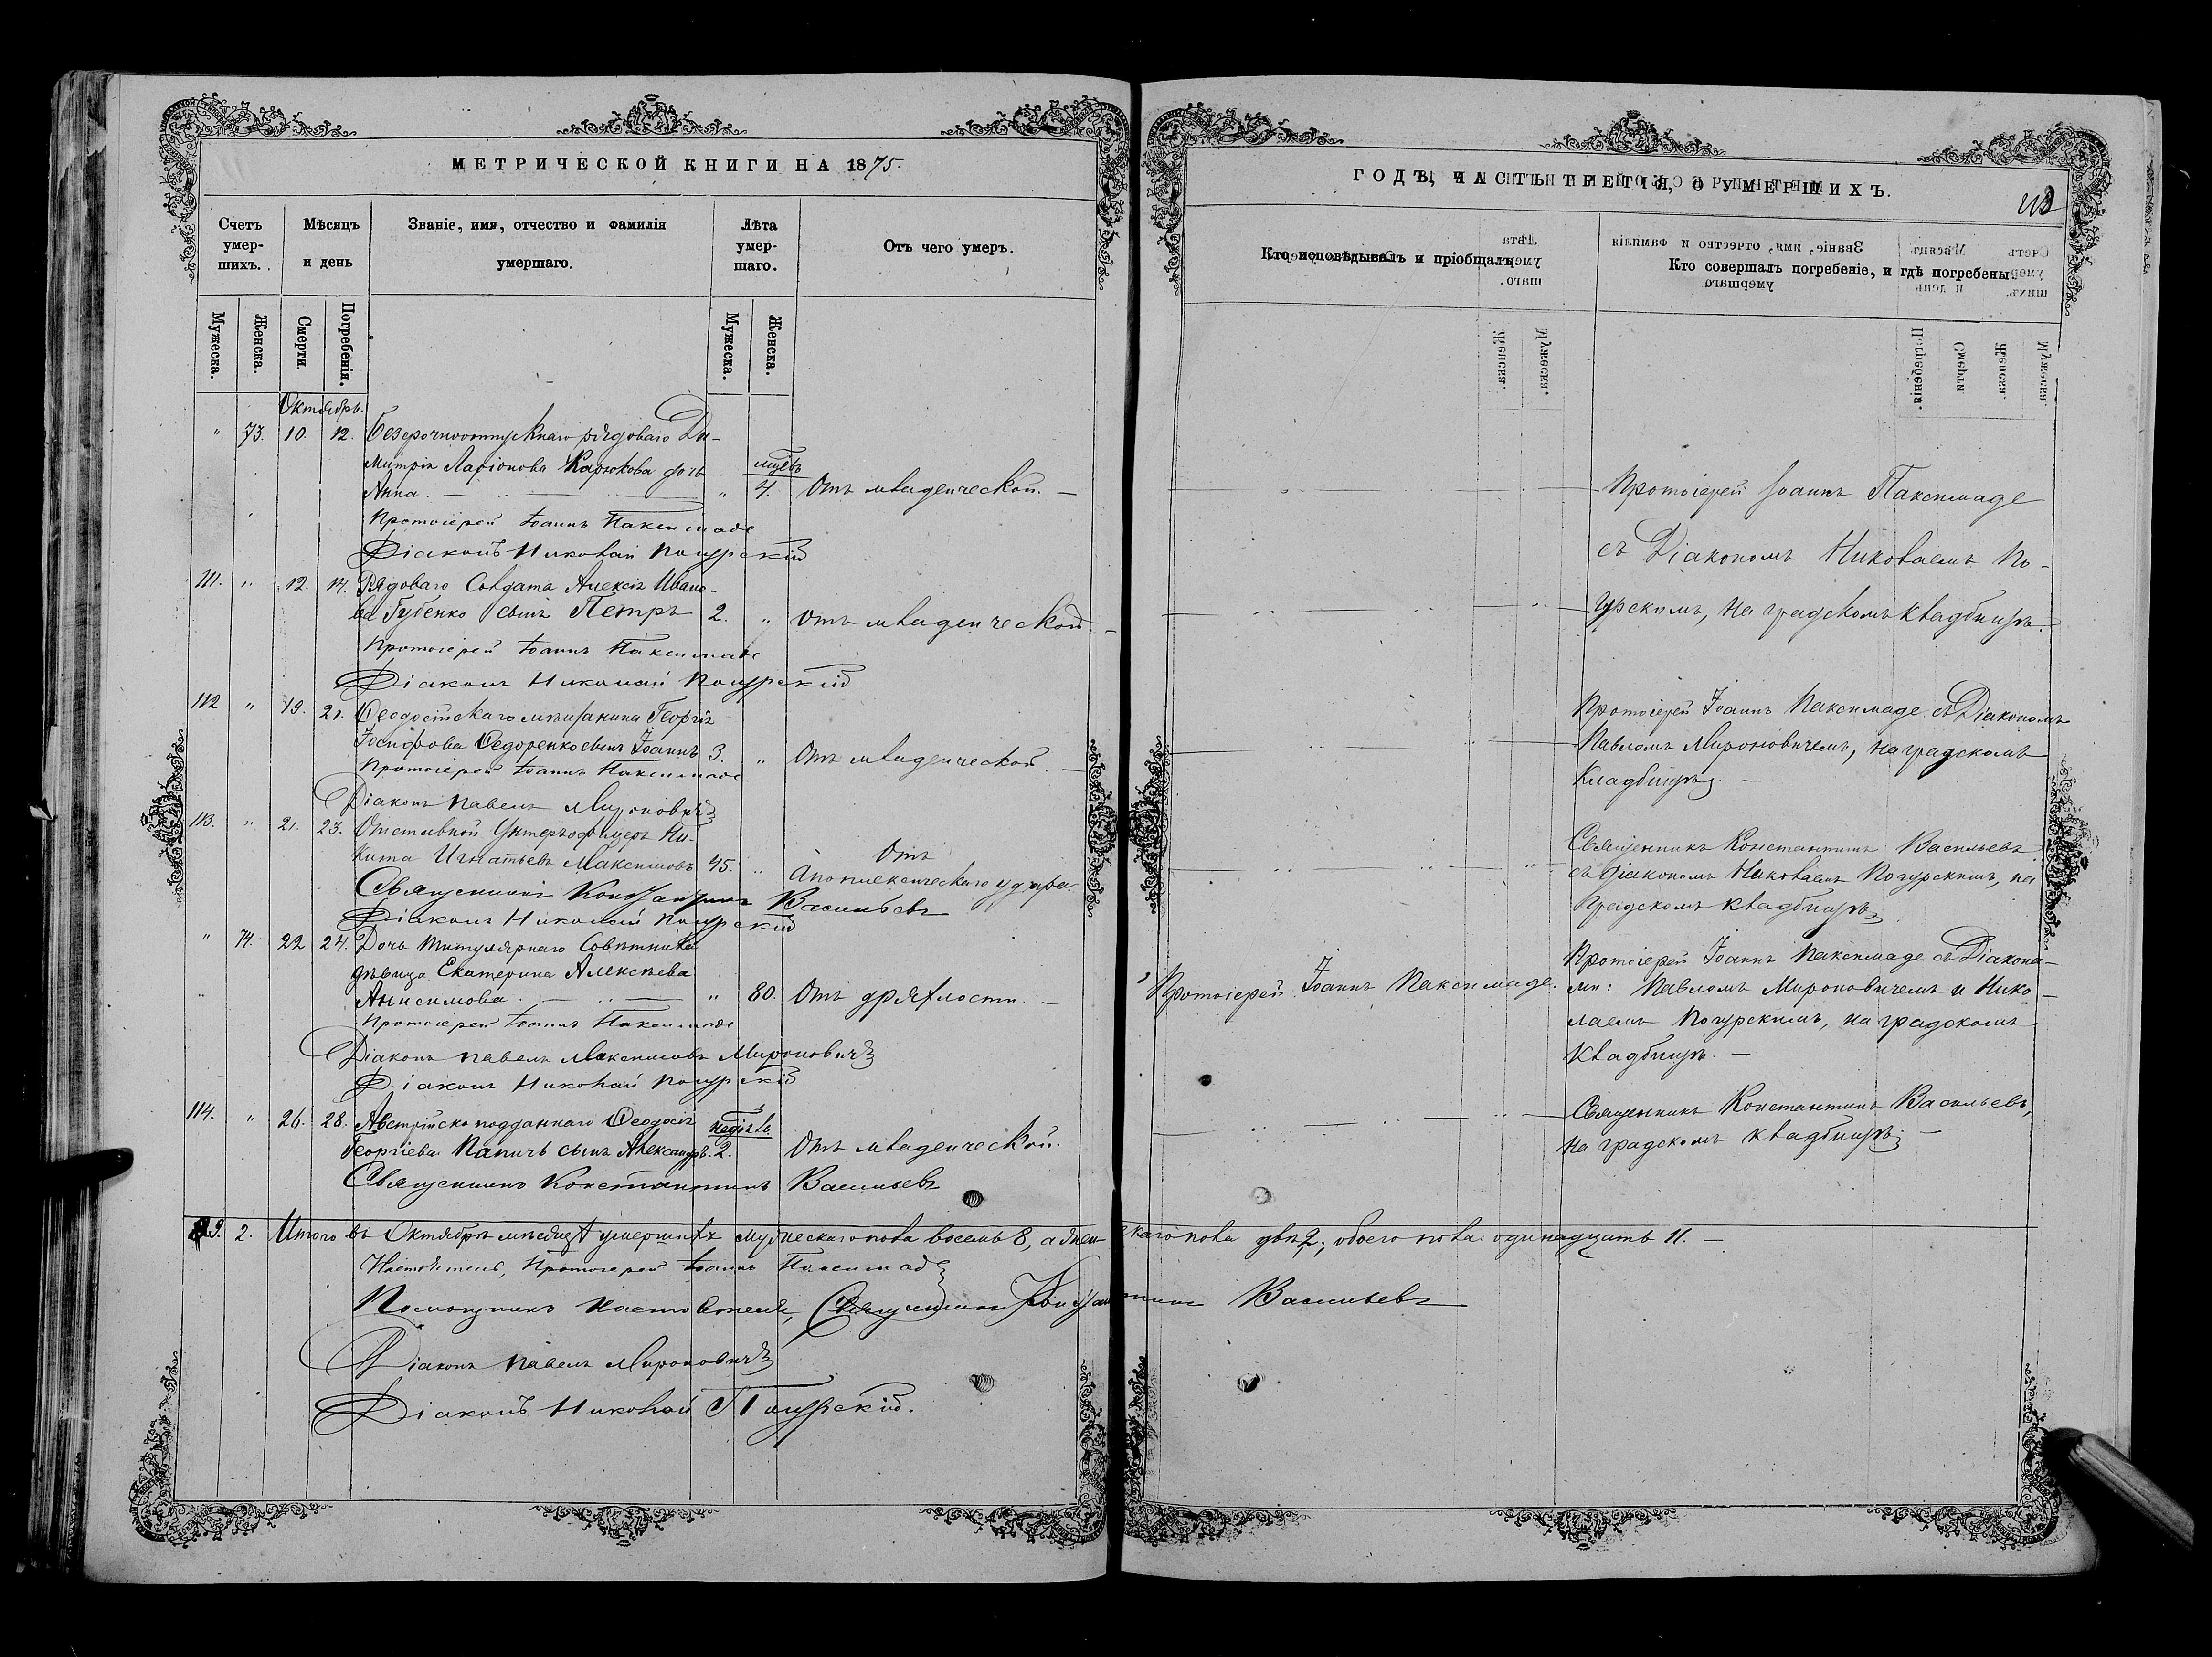 МЕТРИЧЕСКОЙ КНИГИ НА 1875.
Счетъ умер-шихъ.
Мѣсяцъ и день
Званіе, имя, отчество и фамилія умершаго.
Лѣта умер-шаго.
Отъ чего умеръ.
Мужеска.
Женска.
Смерти.
Погребенія.
Мужеска.
Женска.
Октябрь.
" 73. 10. 12. Безсрочноотпускнаго рядоваго Ди-
митрія Ларіонова Карюкова дочь
Анна. " 4. Отъ младенческой.
Протоіерей Іоаннъ Паксимаде
Діаконъ Николай Погурскій
111. " 12. 14. Рядоваго Солдата Алексія Ивано-
ва Губенко сынъ Петръ 2. " Отъ младенческой
Протоіерей Іоаннъ Паксимаде
Діаконъ Николай Погурскій
112 " 19. 21. Ѳеодосійскаго мѣщанина Георгія
Іосифова Ѳедоренко сынъ Іоаннъ 3. " Отъ младенческой.
Протоіерей Іоаннъ Паксимаде
Діаконъ Павелъ Мироновичъ
113. " 21. 23. Отставной Унтеръ-офицеръ Ни-
кита Игнатьевъ Максимовъ 45. " Отъ
Апоплексическаго удара.
Священникъ Константинъ Васильевъ
Діаконъ Николай Погурскій
" 74. 22 24. Дочь Титулярнаго Совѣтника
дѣвица Екатерина Алексѣева
Анисимова. " 80. Отъ дряхлости.
Протоіерей Іоаннъ Паксимаде
Діаконъ Павелъ Максимовъ Мироновичъ
Діаконъ Николай Погурскій
114. " 26. 28. Австрійско подданнаго Ѳеодосія
Георгіева Папичъ сынъ Александръ. 2. Отъ младенческой.
Священникъ Константинъ Васильевъ
2. Итого въ Октябрѣ мѣсяцѣ умершихъ мужескаго пола восемь 8, а женскаго пола двѣ 2., обоего пола одинадцать 11.
Настоятель, Протоіерей Іоаннъ Паксимаде
Помощникъ Настоятеля, Священникъ Константинъ Васильевъ
Діаконъ Павелъ Мироновичъ
Діаконъ Николай Погурскій.
ГОДЪ, ЧАСТЬ ТРЕТІЯ, О УМЕРШИХЪ.
Кто исповѣдывалъ и пріобщалъ.
Кто совершалъ погребеніе, и гдѣ погребены.
Протоіерей Іоаннъ Паксимаде
съ Діакономъ Николаемъ По-
гурскимъ, на градскомъ кладбищѣ.
Протоіерей Іоаннъ Паксимаде съ Діакономъ
Павломъ Мироновичемъ, на градскомъ
кладбищѣ.
Священникъ Константинъ Васильевъ
съ діакономъ Николаемъ Погурскимъ, на
градскомъ кладбищѣ
Протоіерей Іоаннъ Паксимаде.
Протоіерей Іоаннъ Паксимаде съ Діакона-
ми: Павломъ Мироновичемъ и Нико-
лаемъ Погурскимъ, на градскомъ
кладбищѣ.
Священникъ Константинъ Васильевъ,
на градскомъ кладбищѣ